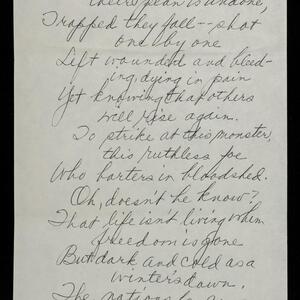 plan is undone,
Trapped they fall -- shot
one by one
Left wounded and bleed-
ing, dying in pain
Yet knowing that others
will rise again.
To strike at this monster,
this ruthless foe
Who barters in bloodshed.
Oh, doesn't he know?
That life isn't living when
freedom is gone
But dark and cold as a
winter's dawn.
The nations